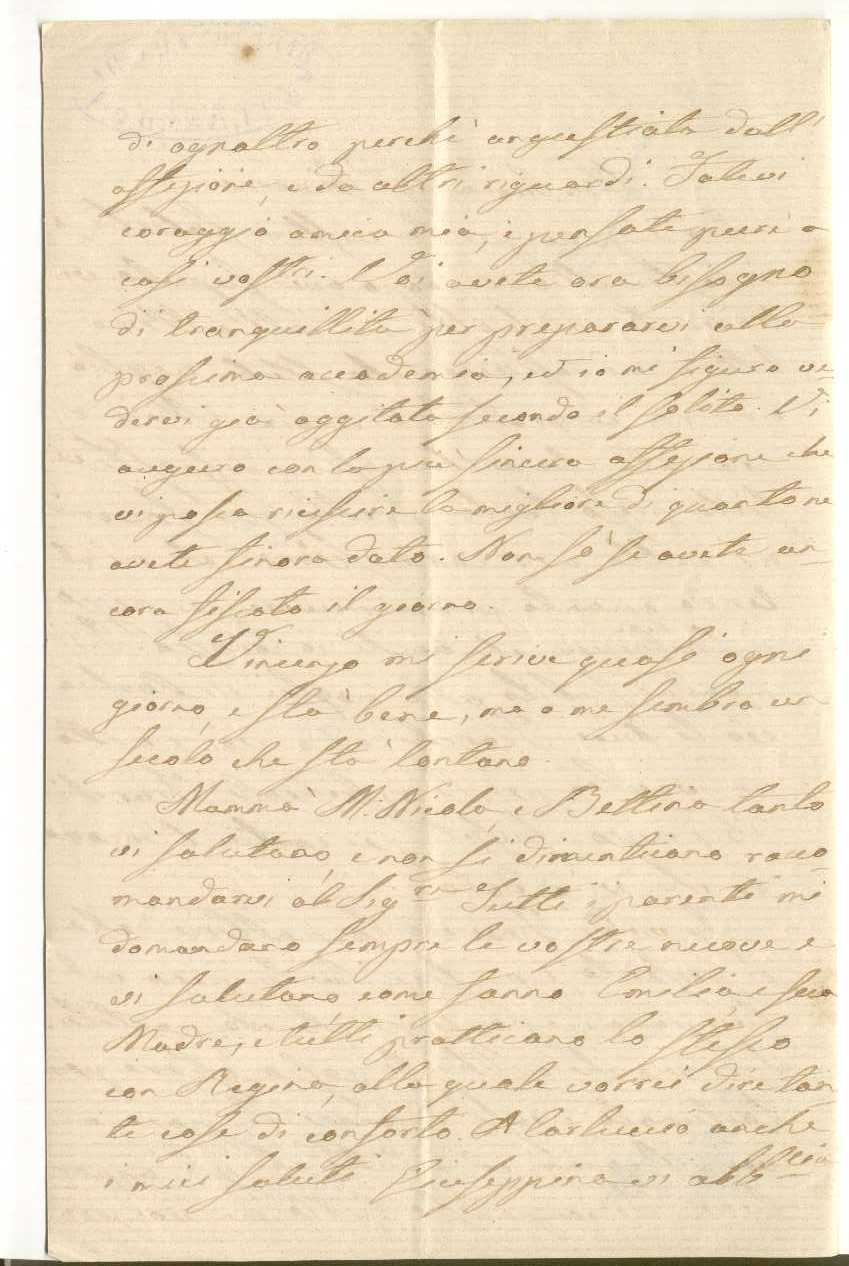 di ognaltro perchè angustiata dall'
affezione, e da altri riguardi. Fatevi
coraggio amica mia, e pensate pure a
casi vostri. Voi avete ora bisogno
di tranquillità per prepararvi alla
prossima accademia, ed io mi figuro ve-
dervi già aggitata secondo il solito. Vi
auguro con la più sincera affezione che
vi possa riescire la migliore di quanto ne
avete finora dato. Non sò se avete an-
cora fissato il giorno.
Vincenzo mi scrive quasi ogni
giorno, e stà bene, ma a me sembra un
secolo che stà lontano.
Mammà M. Nicola, e Bettina tanto
vi salutano, e non si dimenticano racco
mandarvi al Sig.re Tutti i parenti mi
domandano sempre le vostre nuove e
vi salutano, come fanno Emilia, e sua
Madre, e tutti pratticano lo stesso
con Regina, alla quale vorrei dire tan
te cose di conforto. A Carluccio anche
i miei saluti Giuseppina vi abb.ccia